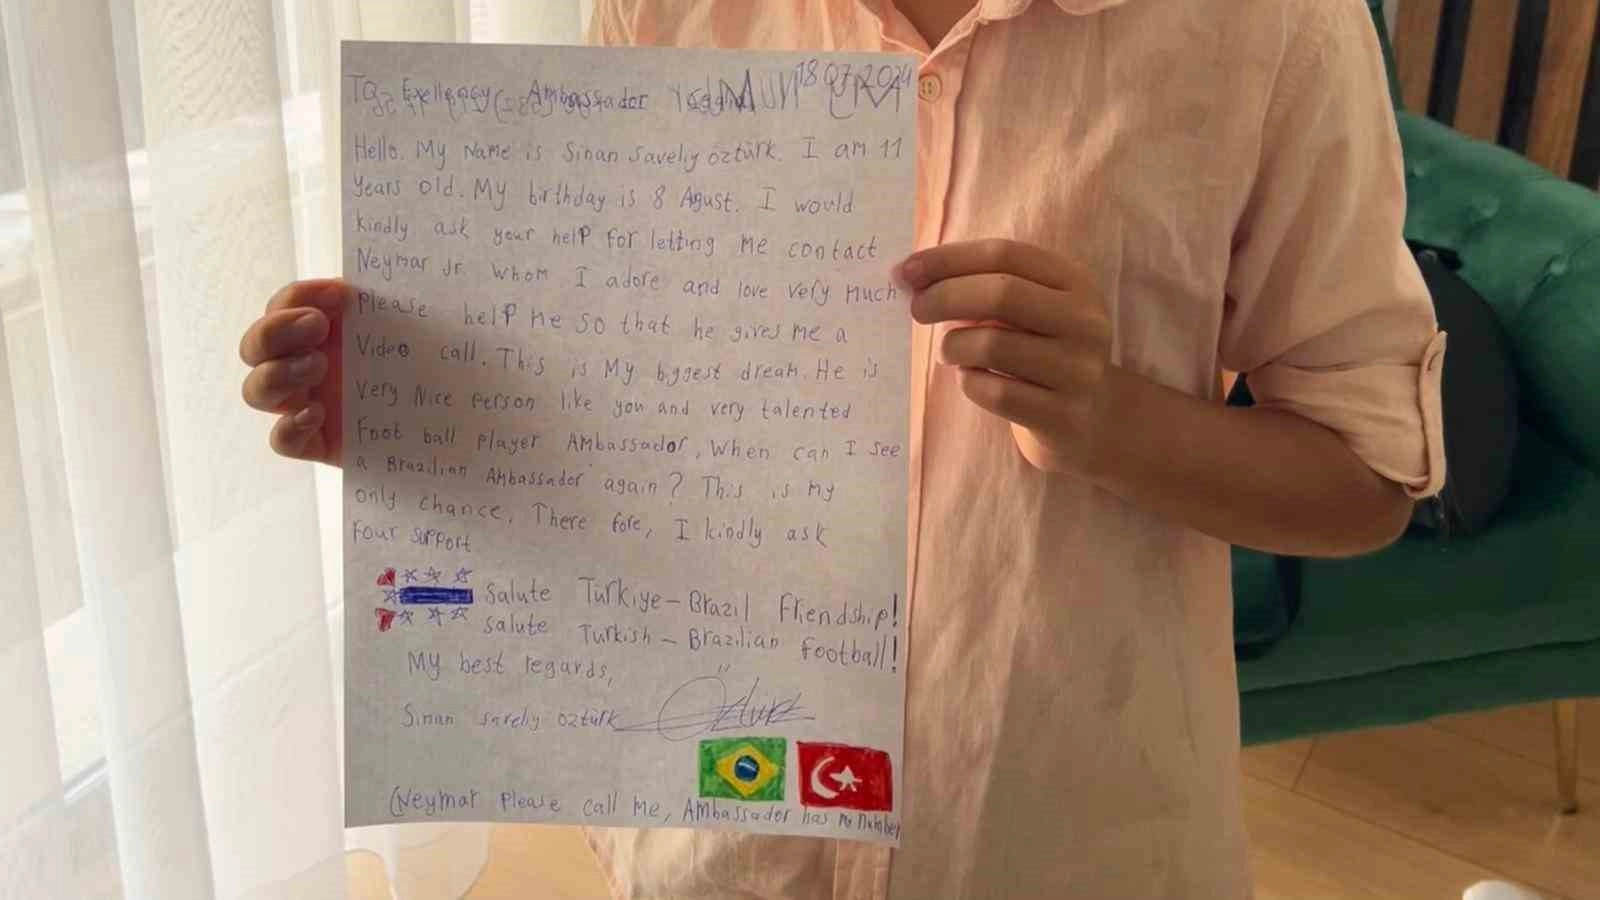 18 07 2024
To Exellency Ambassador
Hello. My Name is Sinan Saveliy öztürk. I am 11
years old. My birthday is 8 Agust. I would
kindly ask your help for letting me contact
Neymar Jr. whom I adore and love very much
please help me so that he gives me a
Video call. This is My biggest dream. He is
very Nice person like you and very talented
Foot ball player Ambassador, When can I see
a Brazilian Ambassador again? This is my
only chance. There fore, I kindly ask
Your support
Salute Türkiye - Brazil Friendship!
Salute Turkish - Brazilian Football!
My best regards,
Sinan Saveliy öztürk
(Neymar please call me, Ambassador has my number